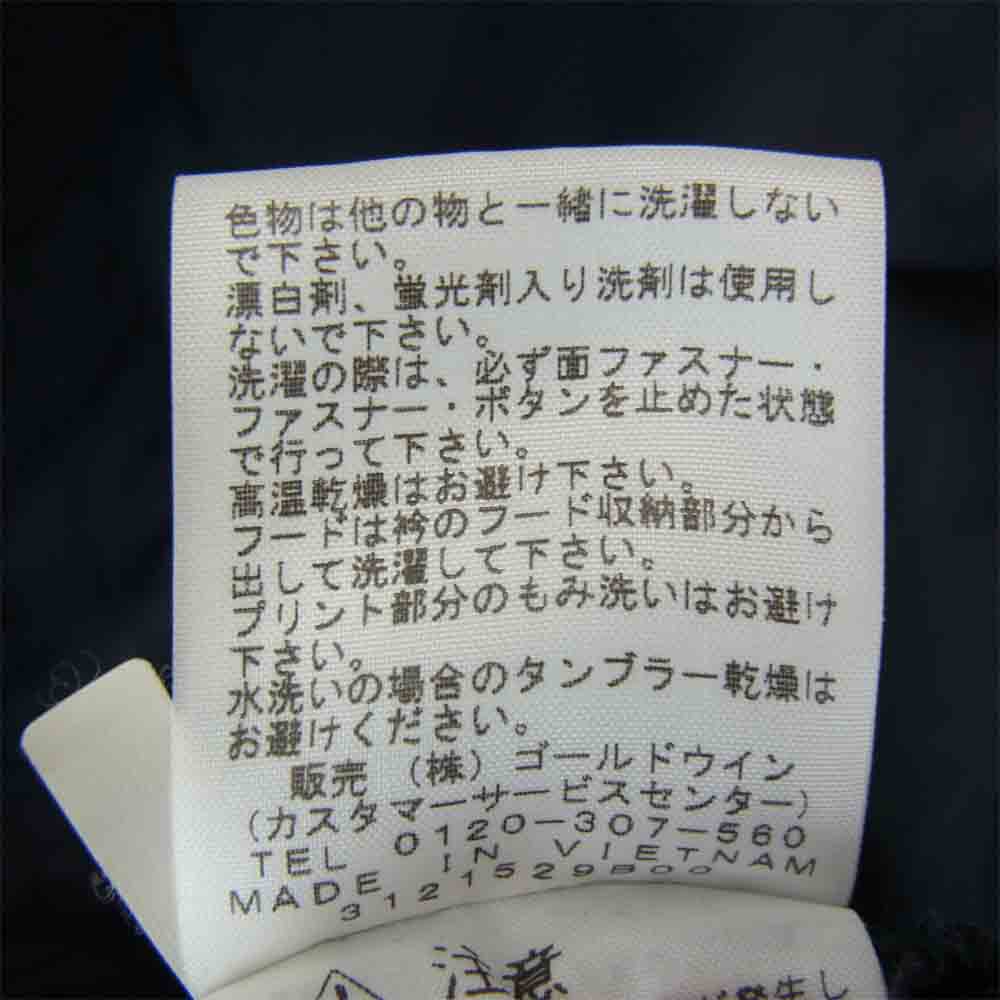 色物は他の物と一緒に洗濯しない
で下さい。
漂白剤、蛍光剤入り洗剤は使用し
ないで下さい。
洗濯の際は、必ず面ファスナー・
ファスナー・ボタンを止めた状態
で行って下さい。
高温乾燥はお避け下さい。
フードは衿のフード収納部分から
出して洗濯して下さい。
プリント部分のもみ洗いはお避け
下さい。
水洗いの場合のタンブラー乾燥は
お避けください。
販売 (株) ゴールドウイン
(カスタマーサービスセンター)
TEL 0120-307-560
MADE IN VIETNAM
3121529B00
注意
発生し